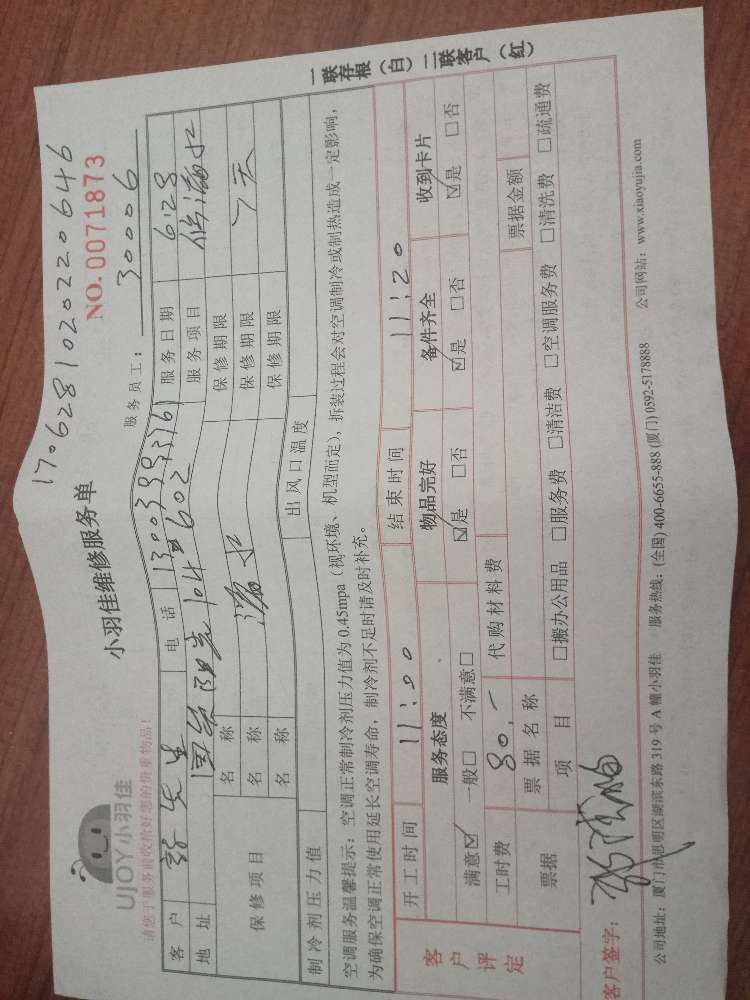 170628102022 0646
UJOY小羽佳
小羽佳维修服务单
NO. 0071873
请您于服务前收拾好您的贵重物品!
服务员工: 30006
客户 先生 电话 服务日期 6.28
地址 104#602 服务项目 修漏水
保修项目 名称 漏水 保修期限
名称 保修期限 7天
名称 保修期限
制冷剂压力值 出风口温度
空调服务温馨提示:空调正常制冷剂压力值为 0.45mpa(视环境、机型而定),拆装过程会对空调制冷或制热造成一定影响,
为确保空调正常使用延长空调寿命,制冷剂不足时请及时补充。
客户评定 开工时间 11:00 结束时间 11:20
服务态度 物品完好 备件齐全 收到卡片
满意☑ 一般□ 不满意□ ☑是 □否 ☑是 □否 ☑是 □否
工时费 80.- 代购材料费
票据 票据名称 票据金额
项目 □搬办公用品 □服务费 □清洁费 □空调服务费 □清洗费 □疏通费
客户签字:
公司地址:厦门市思明区湖滨东路 319 号 A 幢小羽佳 服务热线:(全国) 400-6655-888 (厦门) 0592-5178888 公司网站:www.xiaoyujia.com
一联存根(白)二联客户(红)